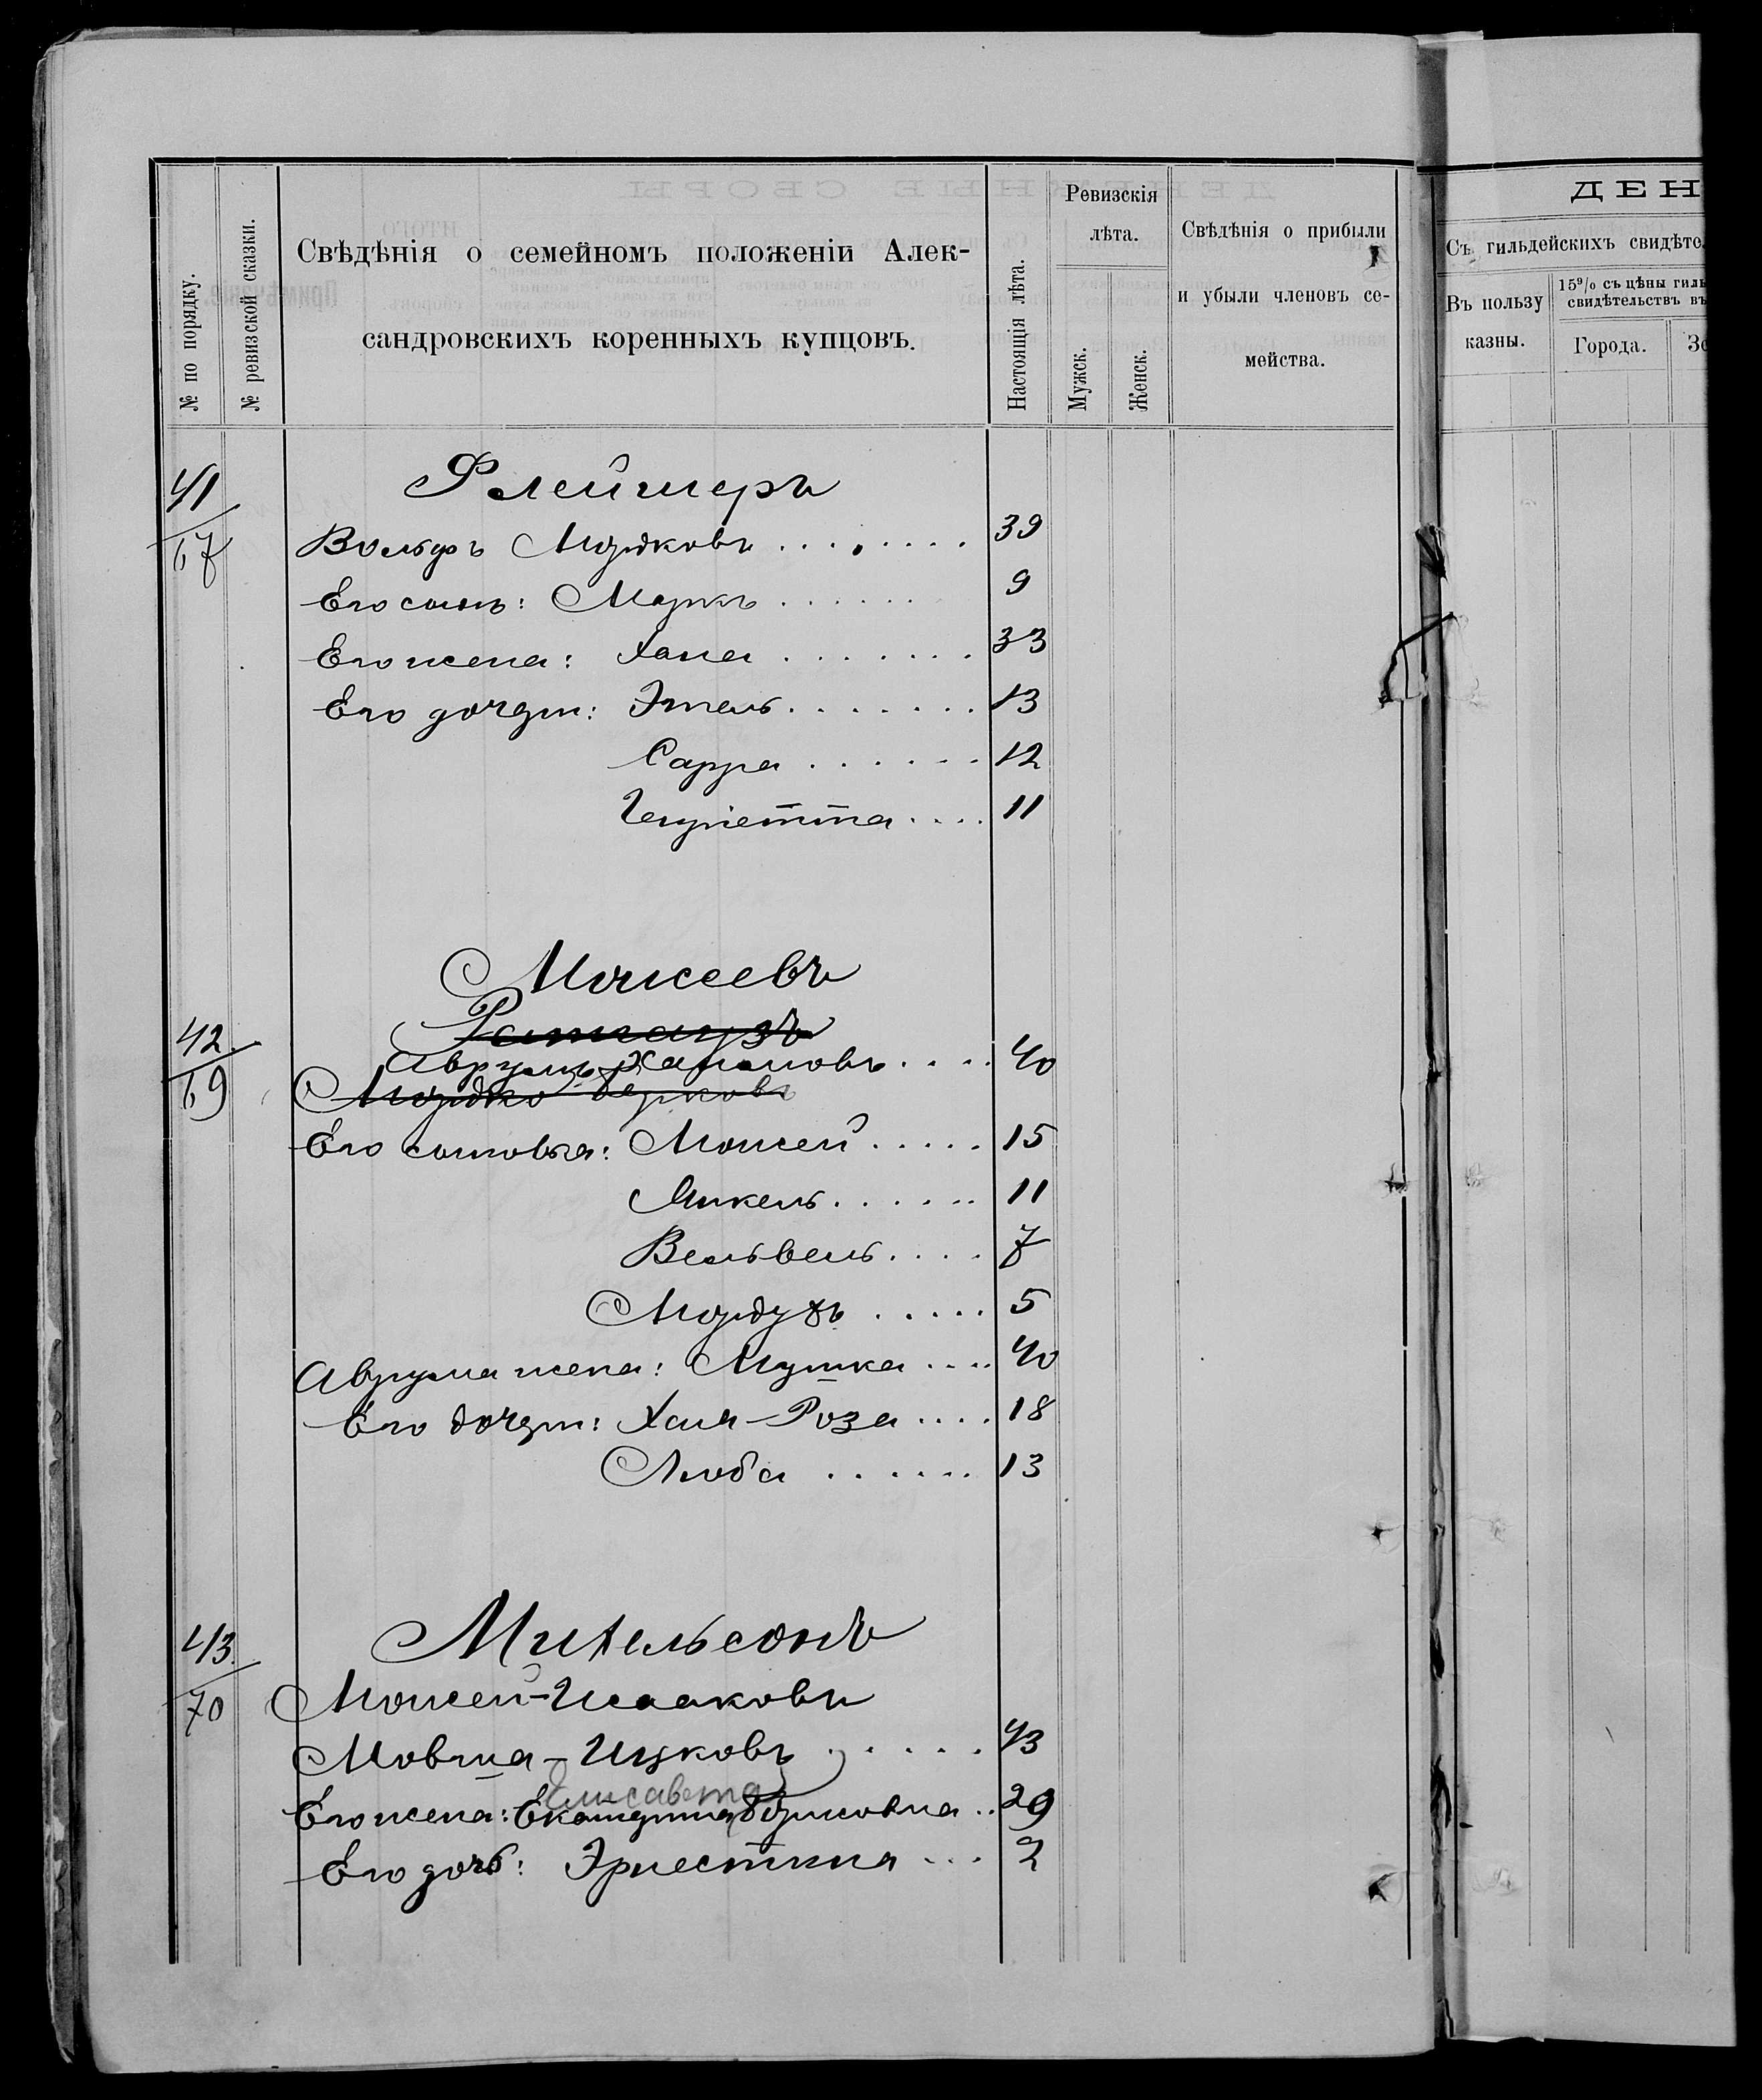 № по порядку.
№ ревизской сказки.
Свѣдѣнія о семейномъ положеніи Алек-
сандровскихъ коренныхъ купцовъ.
Настоящія лѣта.
Ревизскія
лѣта.
Мужск.
Женск.
Свѣдѣнія о прибыли
и убыли членовъ се-
мейства.
ДЕН
Съ гильдейскихъ свидѣте
Въ пользу
казны.
15% съ цѣны гиль
свидѣтельствъ въ
Города.
41
67
Флейшеръ
Вольфъ Мордковъ . . . . . . . . 39
Его сынъ: Маркъ . . . . . . 9
Его жена: Хана . . . . . . . 33
Его дочери: Этель . . . . . . . 13
Сарра . . . . . . 12
Генріетта . . . . 11
Моисеевъ
42
69
Аврумъ Хаимовъ . . . . 40
Мордко Берковъ
Его сыновья: Моисей . . . . . 15
Янкель . . . . . . 11
Вельвель . . . . 7
Мордухъ . . . . . 5
Аврума жена: Мушка . . . . 40
Его дочери: Хая-Роза . . . . 18
Люба . . . . . . 13
43
70
Михельсонъ
Моисей-Исааковъ
Мовша-Ицковъ . . . . . 43
Елисавета
Его жена: Екатерина Борисовна . . 29
Его дочь: Эрнестина . . . 2